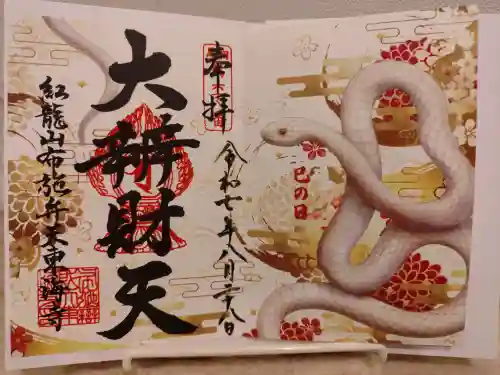 奉拝
令和七年八月二十八日
大辨財天
紅龍山布施弁天東海寺
巳の日